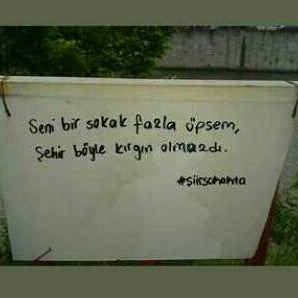 Seni bir sokak fazla öpsem,
Şehir böyle kırgın olmazdı.
#şiirsokakta